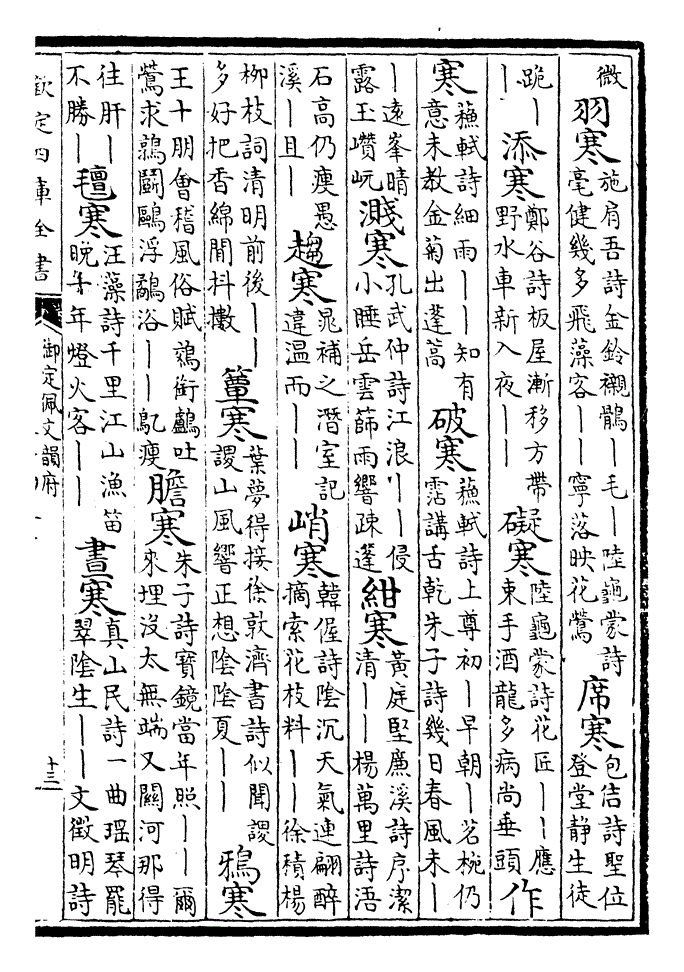 微羽寒施肩吾詩金鈴襯鶻丨毛丨陸龜蒙詩毫健幾多飛藻客丨丨寧落映花鶯席寒包佶詩聖位登堂靜生徒
跪丨丨添寒鄭谷詩板屋漸移方帶野水車新入夜丨丨礙寒陸龜蒙詩花匠丨丨應束手酒龍多病尚垂頭作
寒蘇軾詩細雨丨丨知有意未教金菊出蓬蒿破寒蘇軾詩上尊初丨早朝丨茗椀仍霑講舌乾朱子詩幾日春風未丨
丨遠峯晴露玉巑岏濺寒孔武仲詩江浪丨丨侵小睡岳雲篩雨響疎蓬紺寒黃庭堅廉溪詩序潔清丨丨楊萬里詩浯
石高仍瘦愚溪丨且丨趨寒晁補之潛室記違温而丨丨峭寒韓偓詩陰沉天氣連翩醉摘索花枝料丨丨徐積楊
柳枝詞清明前後丨丨多好把香綿閒抖擻簟寒葉夢得接徐敦濟書詩似聞謖謖山風響正想陰陰夏丨丨鴉寒
王十朋會稽風俗賦鵁銜鸕吐鶯求鷯鬭鷗浮鸂浴丨丨鳧瘦膽寒朱子詩寶鏡當年照丨丨爾來埋沒太無端又關河那得
往肝丨不勝丨氊寒汪藻詩千里江山漁笛晚十年燈火客丨丨晝寒真山民詩一曲瑶琴罷翠陰生丨丨文徵明詩
欽定四庫全書
御定佩文韻府
十三